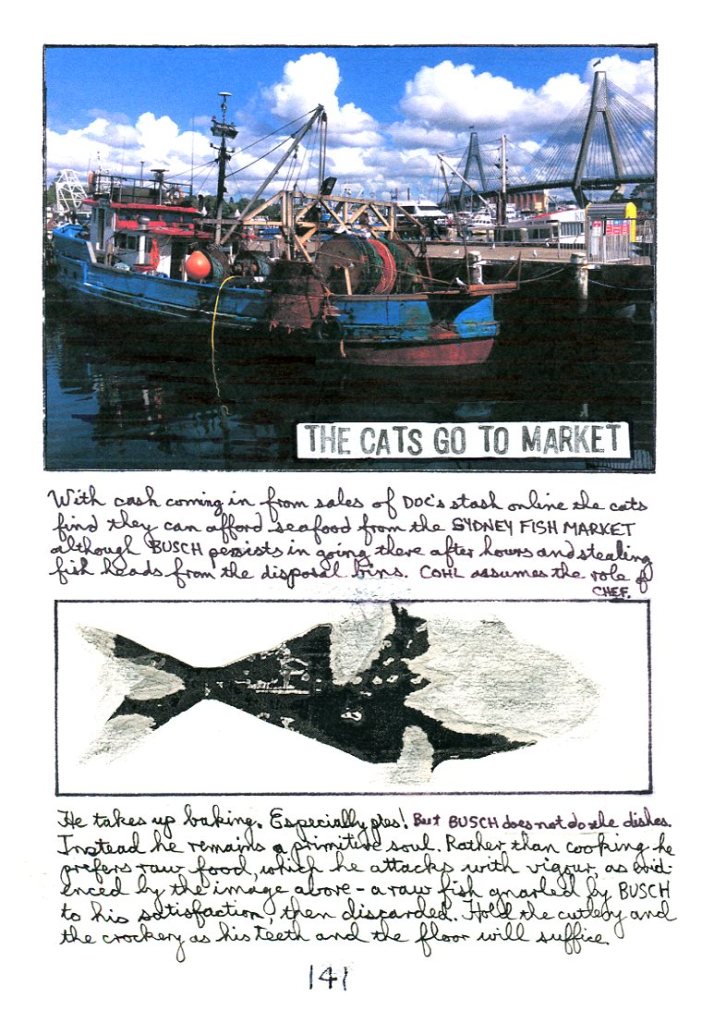 THE CATS GO TO MARKET
With cash coming in from sales of DOC's stash online the cats
find they can afford seafood from the SYDNEY FISH MARKET
although BUSCH persists in going there after hours and stealing
fish heads from the disposal bins. COHL assumes the role of
CHEF.
He takes up baking. Especially pies! But BUSCH does not do the dishes.
Instead he remains a primitive soul. Rather than cooking he
prefers raw food, which he attacks with vigour, as evid-
enced by the image above - a raw fish gnarled by BUSCH
to his satisfaction, then discarded. Hold the cutlery and
the crockery as his teeth and the floor will suffice.
141